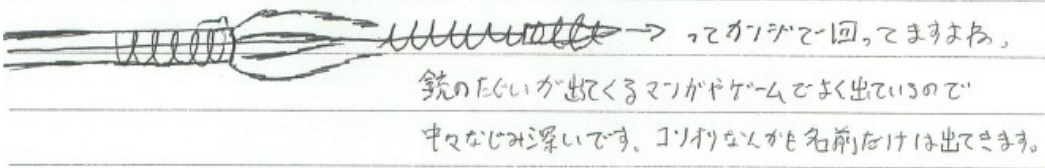 ってカンジで回ってますよね。
銃のたぐいが出てくるマンガやゲームでよく出ているので
中々なじみ深いです、コリオリなんかも名前だけは出てきます。